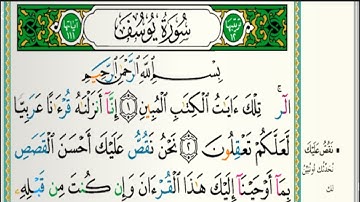 سُورَةُ يُوسُفَ
بِسْمِ اللَّهِ الرَّحْمَٰنِ الرَّحِيمِ
الٓر ۚ تِلْكَ ءَايَٰتُ ٱلْكِتَٰبِ ٱلْمُبِينِ ١ إِنَّآ أَنزَلْنَٰهُ قُرْءَٰنًا عَرَبِيًّا
لَّعَلَّكُمْ تَعْقِلُونَ ٢ نَحْنُ نَقُصُّ عَلَيْكَ أَحْسَنَ ٱلْقَصَصِ
بِمَآ أَوْحَيْنَآ إِلَيْكَ هَٰذَا ٱلْقُرْءَانَ وَإِن كُنتَ مِن قَبْلِهِۦ
نَقُصُّ عَلَيْكَ
نُحدّثك أو نُبيّن
لك